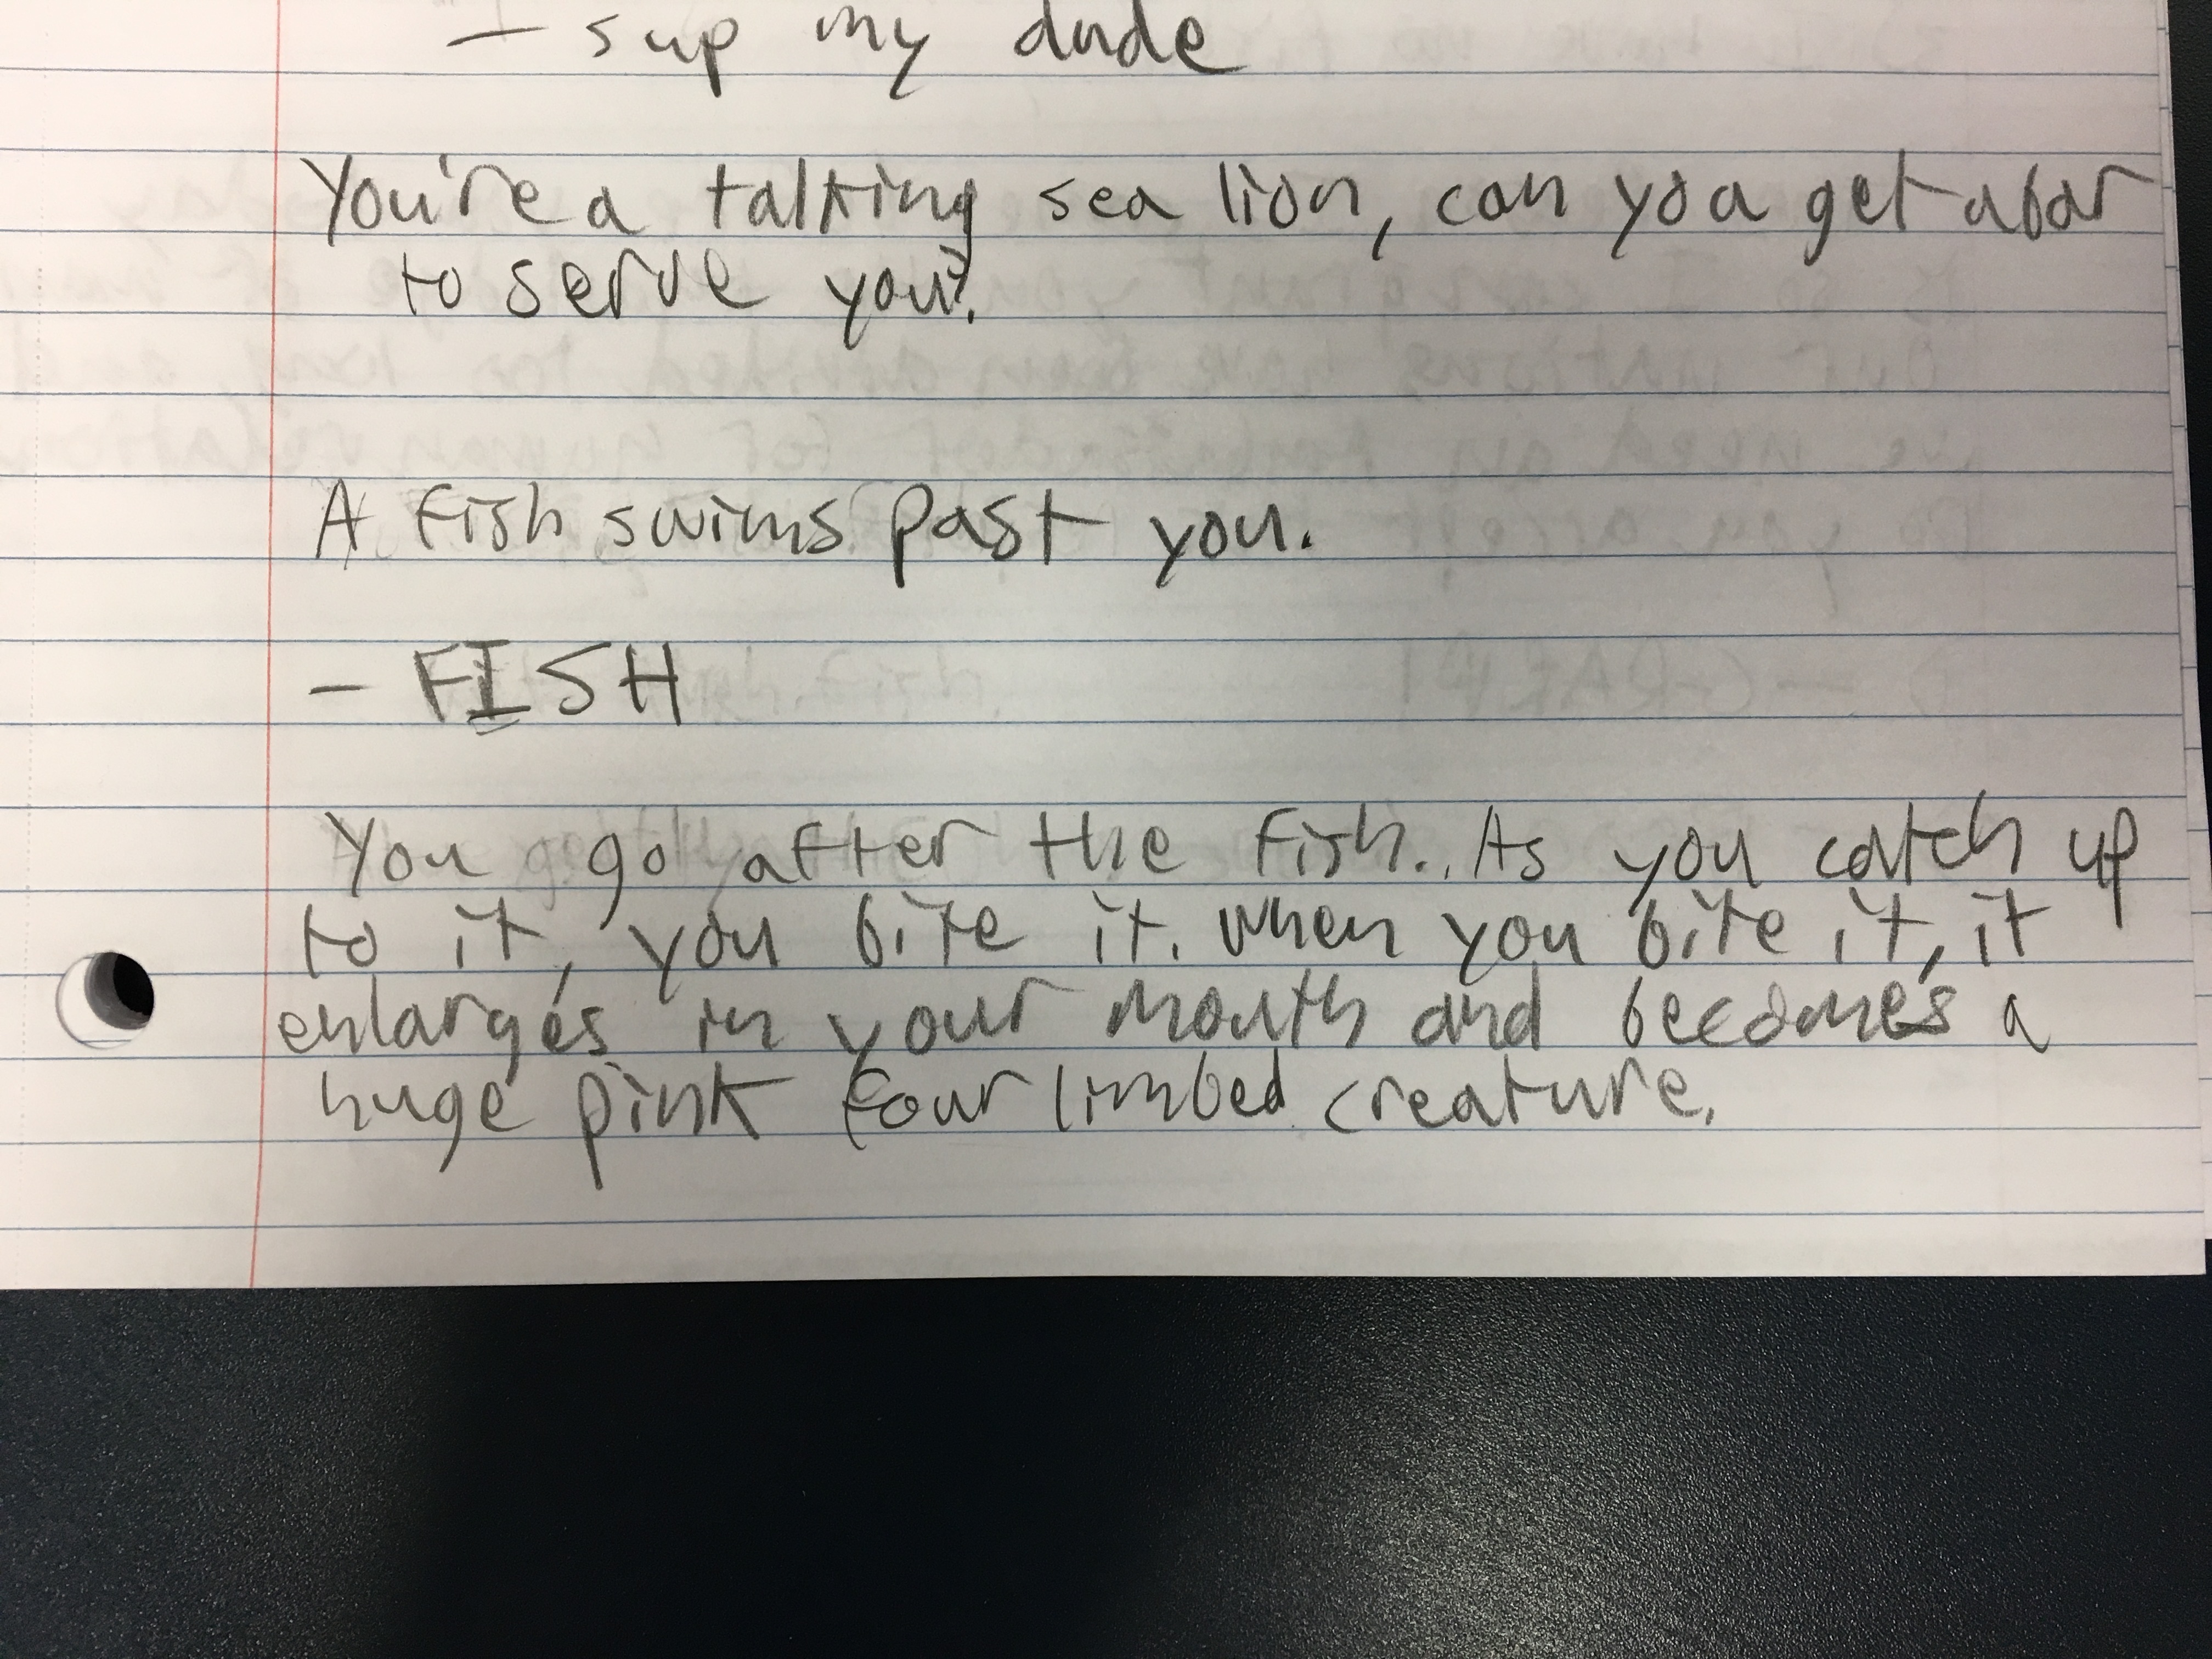 - sup my dude
You're a talking sea lion, can you get a bar
to serve you?
A fish swims past you.
- FISH
You go after the fish. As you catch up
to it, you bite it. When you bite it, it
enlarges in your mouth and becomes a
huge pink four limbed creature.